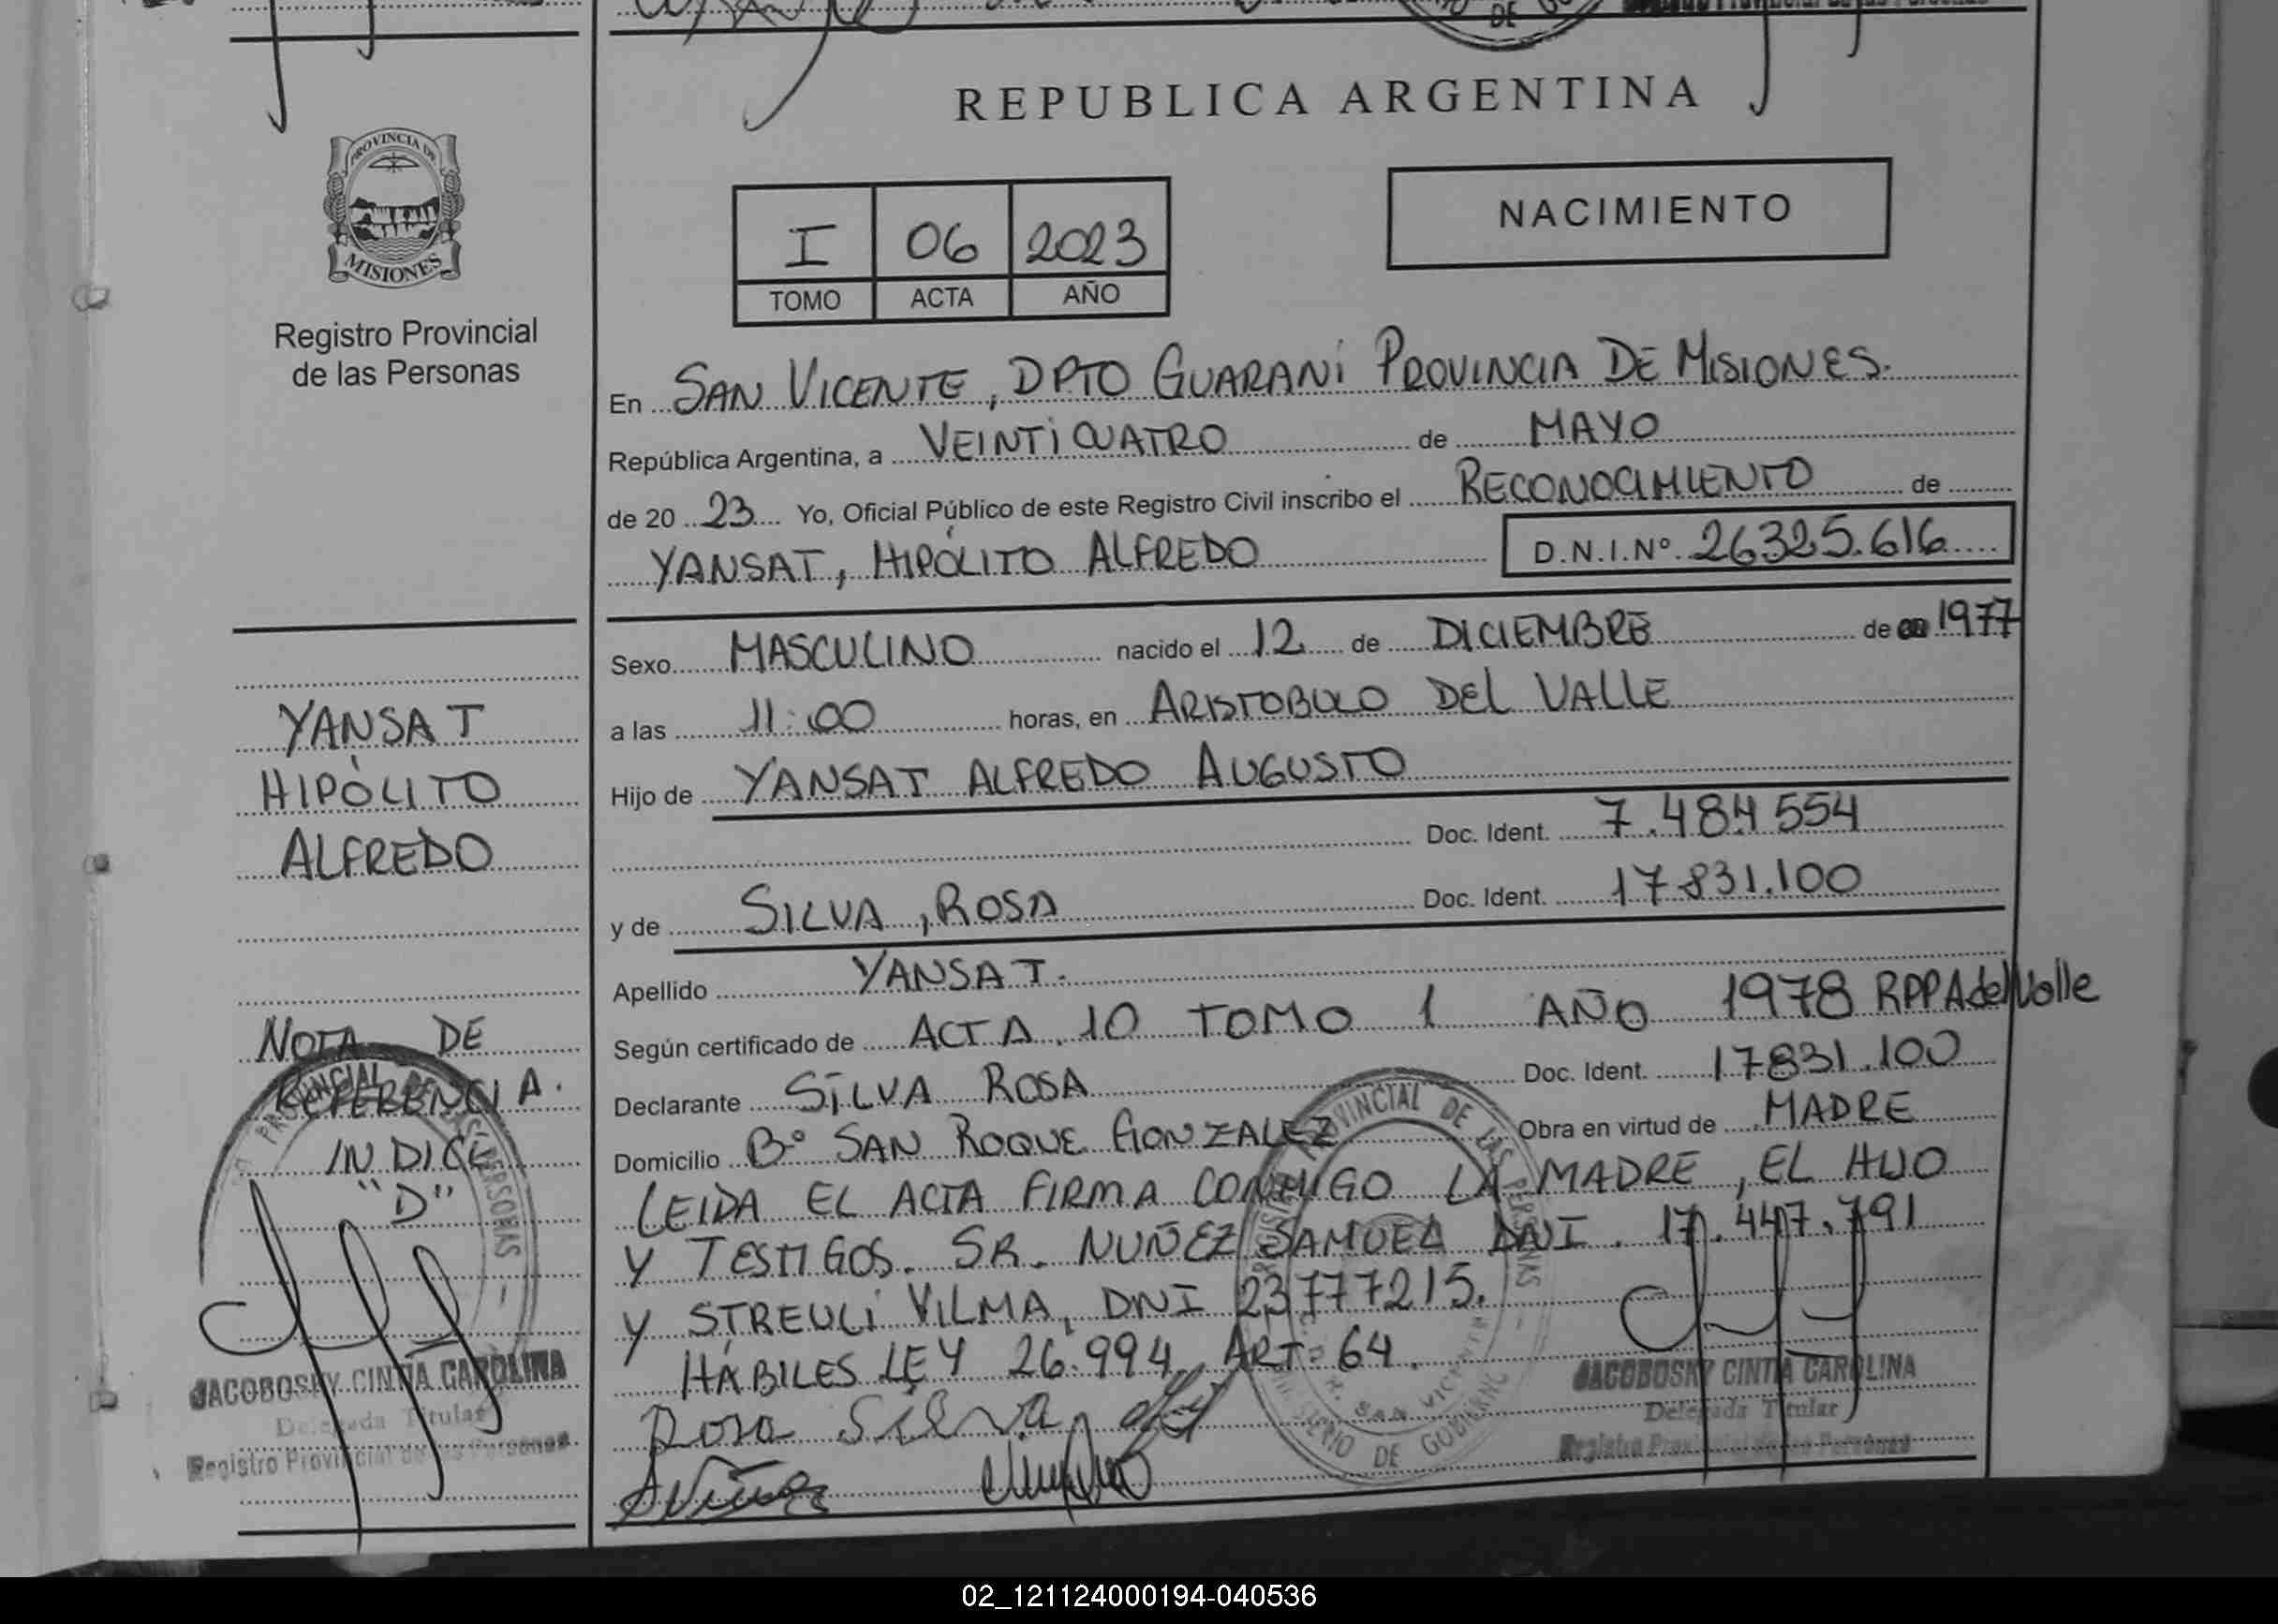 REPUBLICA ARGENTINA
PROVINCIA DE
MISIONES
Registro Provincial
de las Personas
I 06 2023
TOMO ACTA AÑO
NACIMIENTO
En SAN VICENTE, DPTO GUARANÍ PROVINCIA DE MISIONES.
República Argentina, a VEINTICUATRO de MAYO
de 20 23 Yo, Oficial Público de este Registro Civil inscribo el RECONOCIMIENTO de
YANSAT, HIPÓLITO ALFREDO D.N.I.Nº. 26325.616
Sexo MASCULINO nacido el 12 de DICIEMBRE de 1977
a las 11:00 horas, en ARISTOBULO DEL VALLE
Hijo de YANSAT ALFREDO AUGUSTO
Doc. Ident. 7.484.554
y de SILVA, ROSA Doc. Ident. 17831.100
Apellido YANSAT.
Según certificado de ACTA 10 TOMO 1 AÑO 1978 RPPAdelValle
Declarante SILVA ROSA Doc. Ident. 17831.100
Domicilio Bº SAN ROQUE GONZALEZ Obra en virtud de MADRE
LEIDA EL ACTA FIRMA CONMIGO LA MADRE, EL HIJO
Y TESTIGOS. SR. NUÑEZ SAMUEL DNI. 17.447.791
Y STREULI VILMA, DNI 23777215.
HÁBILES LEY 26.994, ART. 64.
Rosa Silva
YANSAT
HIPÓLITO
ALFREDO
NOTA DE
REFERENCIA.
INDICE
"D"
JACOBOSKY CINTIA CAROLINA
Delegada Titular
Registro Provincial de las Personas
PROVINCIAL DE LAS PERSONAS
SAN VICENTE
MINISTERIO DE GOBIERNO
JACOBOSKY CINTIA CAROLINA
Delegada Titular
Registro Provincial de las Personas
02_121124000194-040536